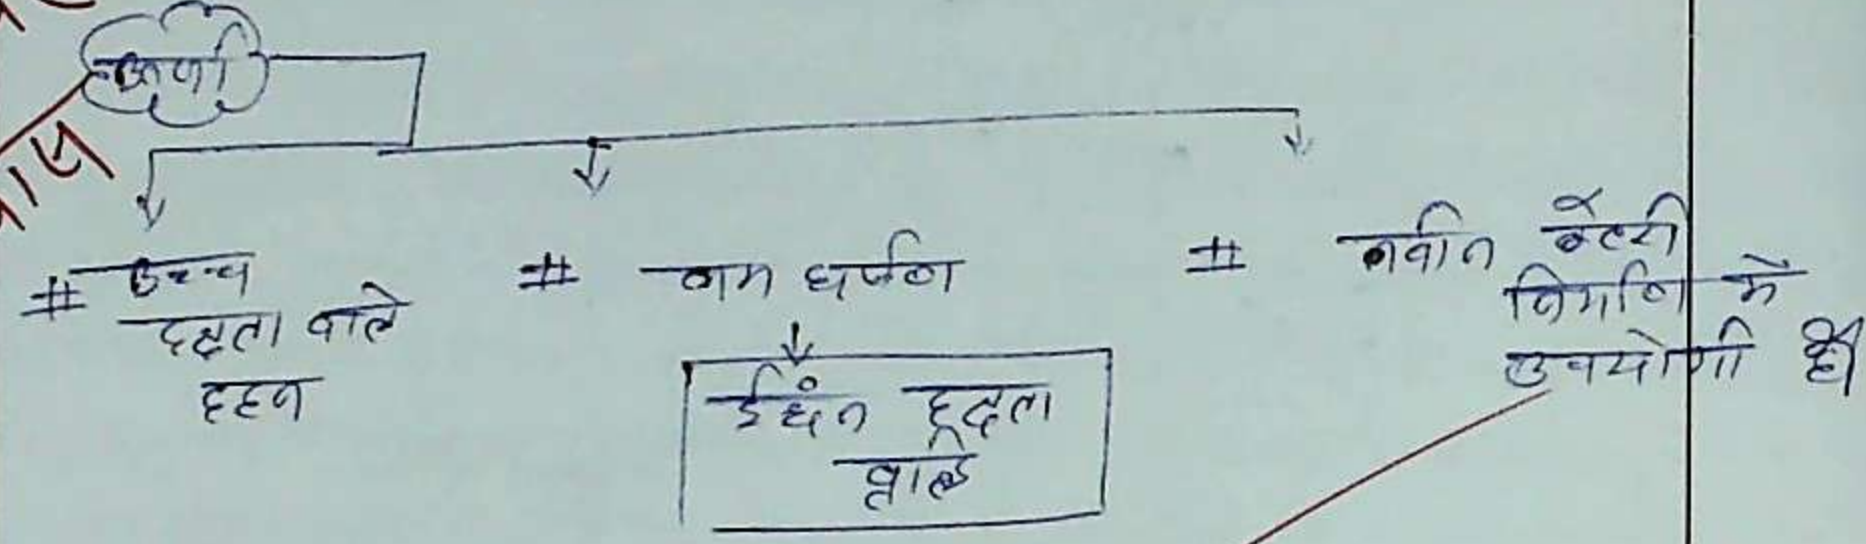 ऊर्जा
# उच्च
दक्षता वाले
दहन
# कम घर्षण
ईंधन दक्षता
# नवीन बैटरी
निर्माण में
उपयोगी है।